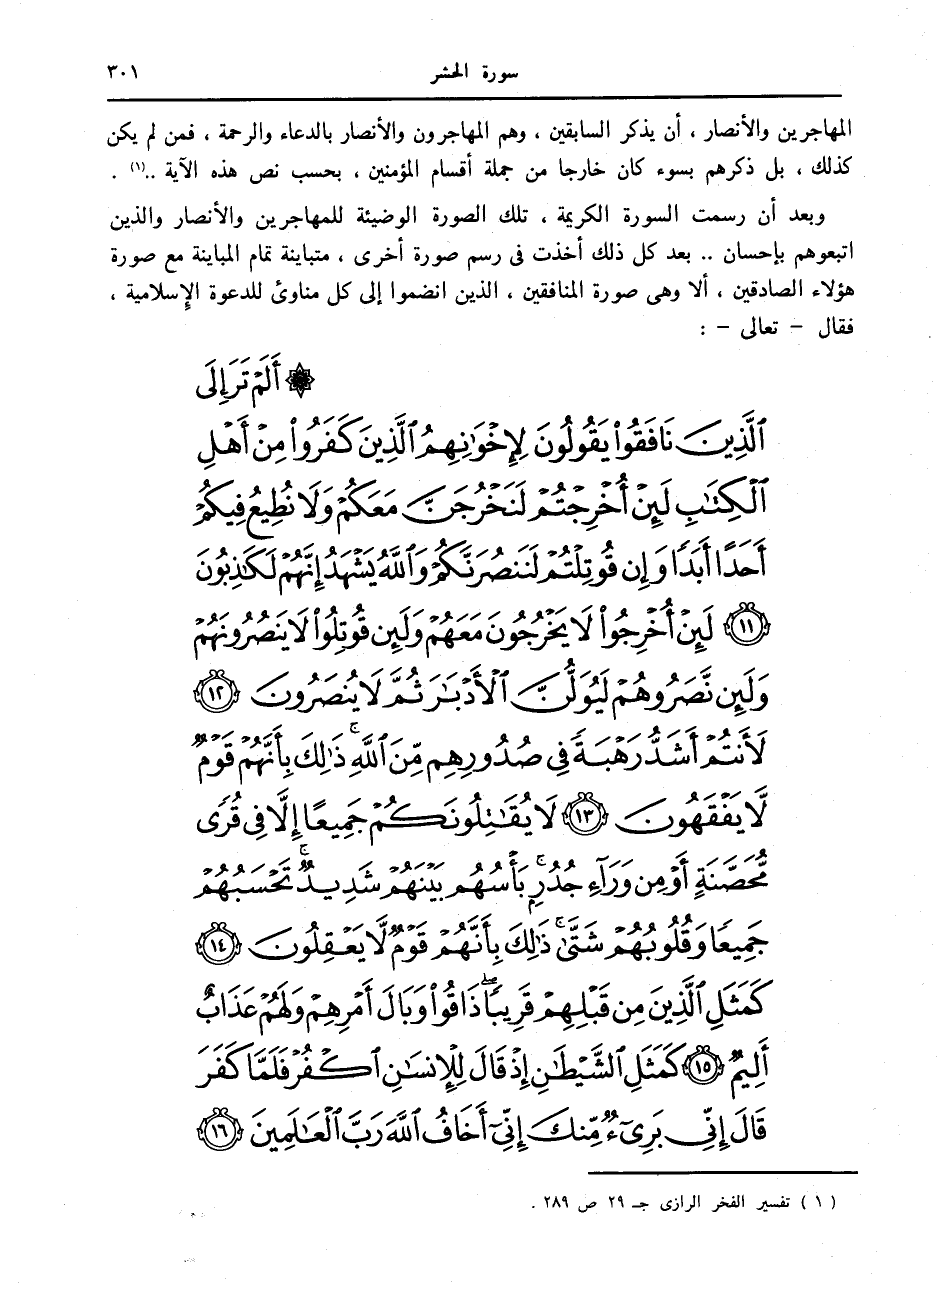 سورة الحشر ٣٠١
المهاجرين والأنصار ، أن يذكر السابقين ، وهم المهاجرون والأنصار بالدعاء والرحمة ، فمن لم يكن
كذلك ، بل ذكرهم بسوء كان خارجا من جملة أقسام المؤمنين ، بحسب نص هذه الآية ..(١) .
وبعد أن رسمت السورة الكريمة ، تلك الصورة الوضيئة للمهاجرين والأنصار والذين
اتبعوهم بإحسان .. بعد كل ذلك أخذت فى رسم صورة أخرى ، متباينة تمام المباينة مع صورة
هؤلاء الصادقين ، ألا وهى صورة المنافقين ، الذين انضموا إلى كل مناوئ للدعوة الإسلامية ،
فقال – تعالى – :
۞ أَلَمْ تَرَ إِلَى
ٱلَّذِينَ نَافَقُوا۟ يَقُولُونَ لِإِخْوَٰنِهِمُ ٱلَّذِينَ كَفَرُوا۟ مِنْ أَهْلِ
ٱلْكِتَٰبِ لَئِنْ أُخْرِجْتُمْ لَنَخْرُجَنَّ مَعَكُمْ وَلَا نُطِيعُ فِيكُمْ
أَحَدًا أَبَدًا وَإِن قُوتِلْتُمْ لَنَنصُرَنَّكُمْ وَٱللَّهُ يَشْهَدُ إِنَّهُمْ لَكَٰذِبُونَ
١١ لَئِنْ أُخْرِجُوا۟ لَا يَخْرُجُونَ مَعَهُمْ وَلَئِن قُوتِلُوا۟ لَا يَنصُرُونَهُمْ
وَلَئِن نَّصَرُوهُمْ لَيُوَلُّنَّ ٱلْأَدْبَٰرَ ثُمَّ لَا يُنصَرُونَ ١٢
لَأَنتُمْ أَشَدُّ رَهْبَةً فِى صُدُورِهِم مِّنَ ٱللَّهِ ۚ ذَٰلِكَ بِأَنَّهُمْ قَوْمٌ
لَّا يَفْقَهُونَ ١٣ لَا يُقَٰتِلُونَكُمْ جَمِيعًا إِلَّا فِى قُرًى
مُّحَصَّنَةٍ أَوْ مِن وَرَآءِ جُدُرٍۭ ۚ بَأْسُهُم بَيْنَهُمْ شَدِيدٌ ۚ تَحْسَبُهُمْ
جَمِيعًا وَقُلُوبُهُمْ شَتَّىٰ ۚ ذَٰلِكَ بِأَنَّهُمْ قَوْمٌ لَّا يَعْقِلُونَ ١٤
كَمَثَلِ ٱلَّذِينَ مِن قَبْلِهِمْ قَرِيبًا ۖ ذَاقُوا۟ وَبَالَ أَمْرِهِمْ وَلَهُمْ عَذَابٌ
أَلِيمٌ ١٥ كَمَثَلِ ٱلشَّيْطَٰنِ إِذْ قَالَ لِلْإِنسَٰنِ ٱكْفُرْ فَلَمَّا كَفَرَ
قَالَ إِنِّى بَرِىٓءٌ مِّنكَ إِنِّىٓ أَخَافُ ٱللَّهَ رَبَّ ٱلْعَٰلَمِينَ ١٦
( ١ ) تفسير الفخر الرازى جـ ٢٩ ص ٢٨٩ .